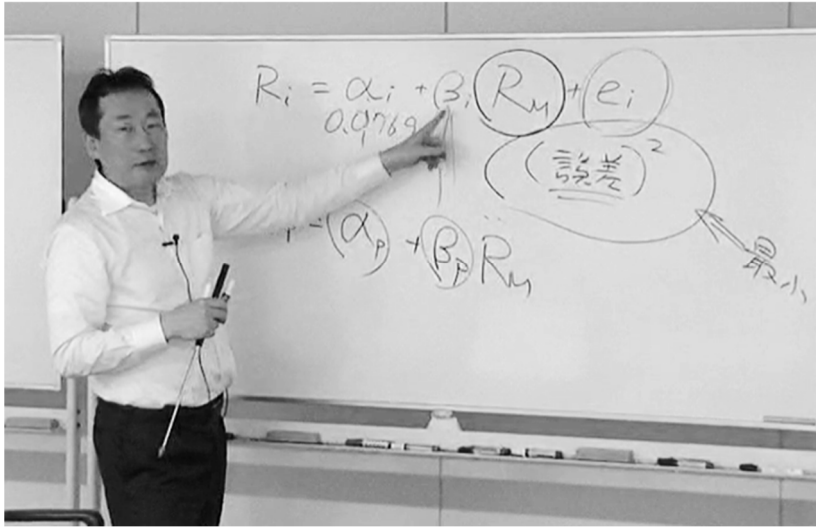 Ri = αi + βi RM + ei
(誤差)²
αp + βp RM
最小